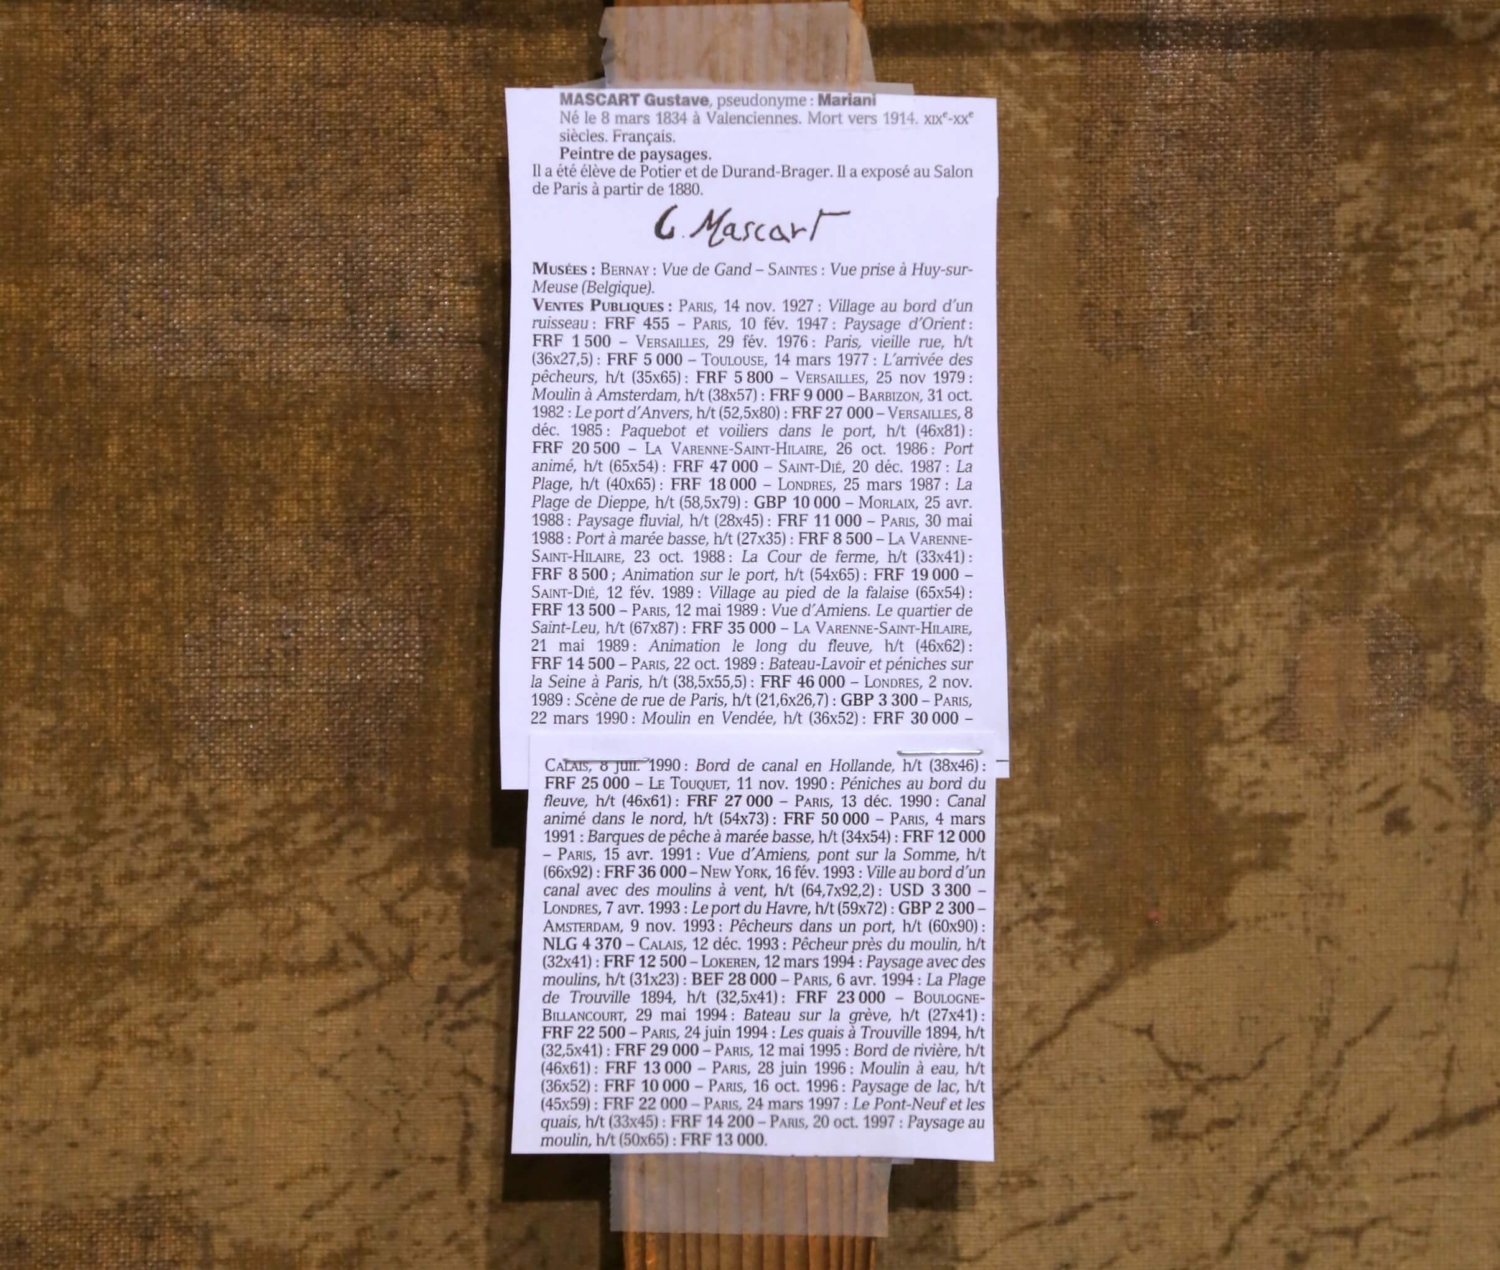 MASCART Gustave, pseudonyme : Mariani
Né le 8 mars 1834 à Valenciennes. Mort vers 1914. XIXe-XXe
siècles. Français.
Peintre de paysages.
Il a été élève de Potier et de Durand-Brager. Il a exposé au Salon
de Paris à partir de 1880.
G. Mascart
MUSÉES : BERNAY : Vue de Gand – SAINTES : Vue prise à Huy-sur-
Meuse (Belgique).
VENTES PUBLIQUES : PARIS, 14 nov. 1927 : Village au bord d'un
ruisseau : FRF 455 – PARIS, 10 fév. 1947 : Paysage d'Orient :
FRF 1 500 – VERSAILLES, 29 fév. 1976 : Paris, vieille rue, h/t
(36x27,5) : FRF 5 000 – TOULOUSE, 14 mars 1977 : L'arrivée des
pêcheurs, h/t (35x65) : FRF 5 800 – VERSAILLES, 25 nov 1979 :
Moulin à Amsterdam, h/t (38x57) : FRF 9 000 – BARBIZON, 31 oct.
1982 : Le port d'Anvers, h/t (52,5x80) : FRF 27 000 – VERSAILLES, 8
déc. 1985 : Paquebot et voiliers dans le port, h/t (46x81) :
FRF 20 500 – LA VARENNE-SAINT-HILAIRE, 26 oct. 1986 : Port
animé, h/t (65x54) : FRF 47 000 – SAINT-DIÉ, 20 déc. 1987 : La
Plage, h/t (40x65) : FRF 18 000 – LONDRES, 25 mars 1987 : La
Plage de Dieppe, h/t (58,5x79) : GBP 10 000 – MORLAIX, 25 avr.
1988 : Paysage fluvial, h/t (28x45) : FRF 11 000 – PARIS, 30 mai
1988 : Port à marée basse, h/t (27x35) : FRF 8 500 – LA VARENNE-
SAINT-HILAIRE, 23 oct. 1988 : La Cour de ferme, h/t (33x41) :
FRF 8 500 ; Animation sur le port, h/t (54x65) : FRF 19 000 –
SAINT-DIÉ, 12 fév. 1989 : Village au pied de la falaise (65x54) :
FRF 13 500 – PARIS, 12 mai 1989 : Vue d'Amiens. Le quartier de
Saint-Leu, h/t (67x87) : FRF 35 000 – LA VARENNE-SAINT-HILAIRE,
21 mai 1989 : Animation le long du fleuve, h/t (46x62) :
FRF 14 500 – PARIS, 22 oct. 1989 : Bateau-Lavoir et péniches sur
la Seine à Paris, h/t (38,5x55,5) : FRF 46 000 – LONDRES, 2 nov.
1989 : Scène de rue de Paris, h/t (21,6x26,7) : GBP 3 300 – PARIS,
22 mars 1990 : Moulin en Vendée, h/t (36x52) : FRF 30 000 –
CALAIS, 8 juil. 1990 : Bord de canal en Hollande, h/t (38x46) :
FRF 25 000 – LE TOUQUET, 11 nov. 1990 : Péniches au bord du
fleuve, h/t (46x61) : FRF 27 000 – PARIS, 13 déc. 1990 : Canal
animé dans le nord, h/t (54x73) : FRF 50 000 – PARIS, 4 mars
1991 : Barques de pêche à marée basse, h/t (34x54) : FRF 12 000
– PARIS, 15 avr. 1991 : Vue d'Amiens, pont sur la Somme, h/t
(66x92) : FRF 36 000 – NEW YORK, 16 fév. 1993 : Ville au bord d'un
canal avec des moulins à vent, h/t (64,7x92,2) : USD 3 300 –
LONDRES, 7 avr. 1993 : Le port du Havre, h/t (59x72) : GBP 2 300 –
AMSTERDAM, 9 nov. 1993 : Pêcheurs dans un port, h/t (60x90) :
NLG 4 370 – CALAIS, 12 déc. 1993 : Pêcheur près du moulin, h/t
(32x41) : FRF 12 500 – LOKEREN, 12 mars 1994 : Paysage avec des
moulins, h/t (31x23) : BEF 28 000 – PARIS, 6 avr. 1994 : La Plage
de Trouville 1894, h/t (32,5x41) : FRF 23 000 – BOULOGNE-
BILLANCOURT, 29 mai 1994 : Bateau sur la grève, h/t (27x41) :
FRF 22 500 – PARIS, 24 juin 1994 : Les quais à Trouville 1894, h/t
(32,5x41) : FRF 29 000 – PARIS, 12 mai 1995 : Bord de rivière, h/t
(46x61) : FRF 13 000 – PARIS, 28 juin 1996 : Moulin à eau, h/t
(36x52) : FRF 10 000 – PARIS, 16 oct. 1996 : Paysage de lac, h/t
(45x59) : FRF 22 000 – PARIS, 24 mars 1997 : Le Pont-Neuf et les
quais, h/t (33x45) : FRF 14 200 – PARIS, 20 oct. 1997 : Paysage au
moulin, h/t (50x65) : FRF 13 000.